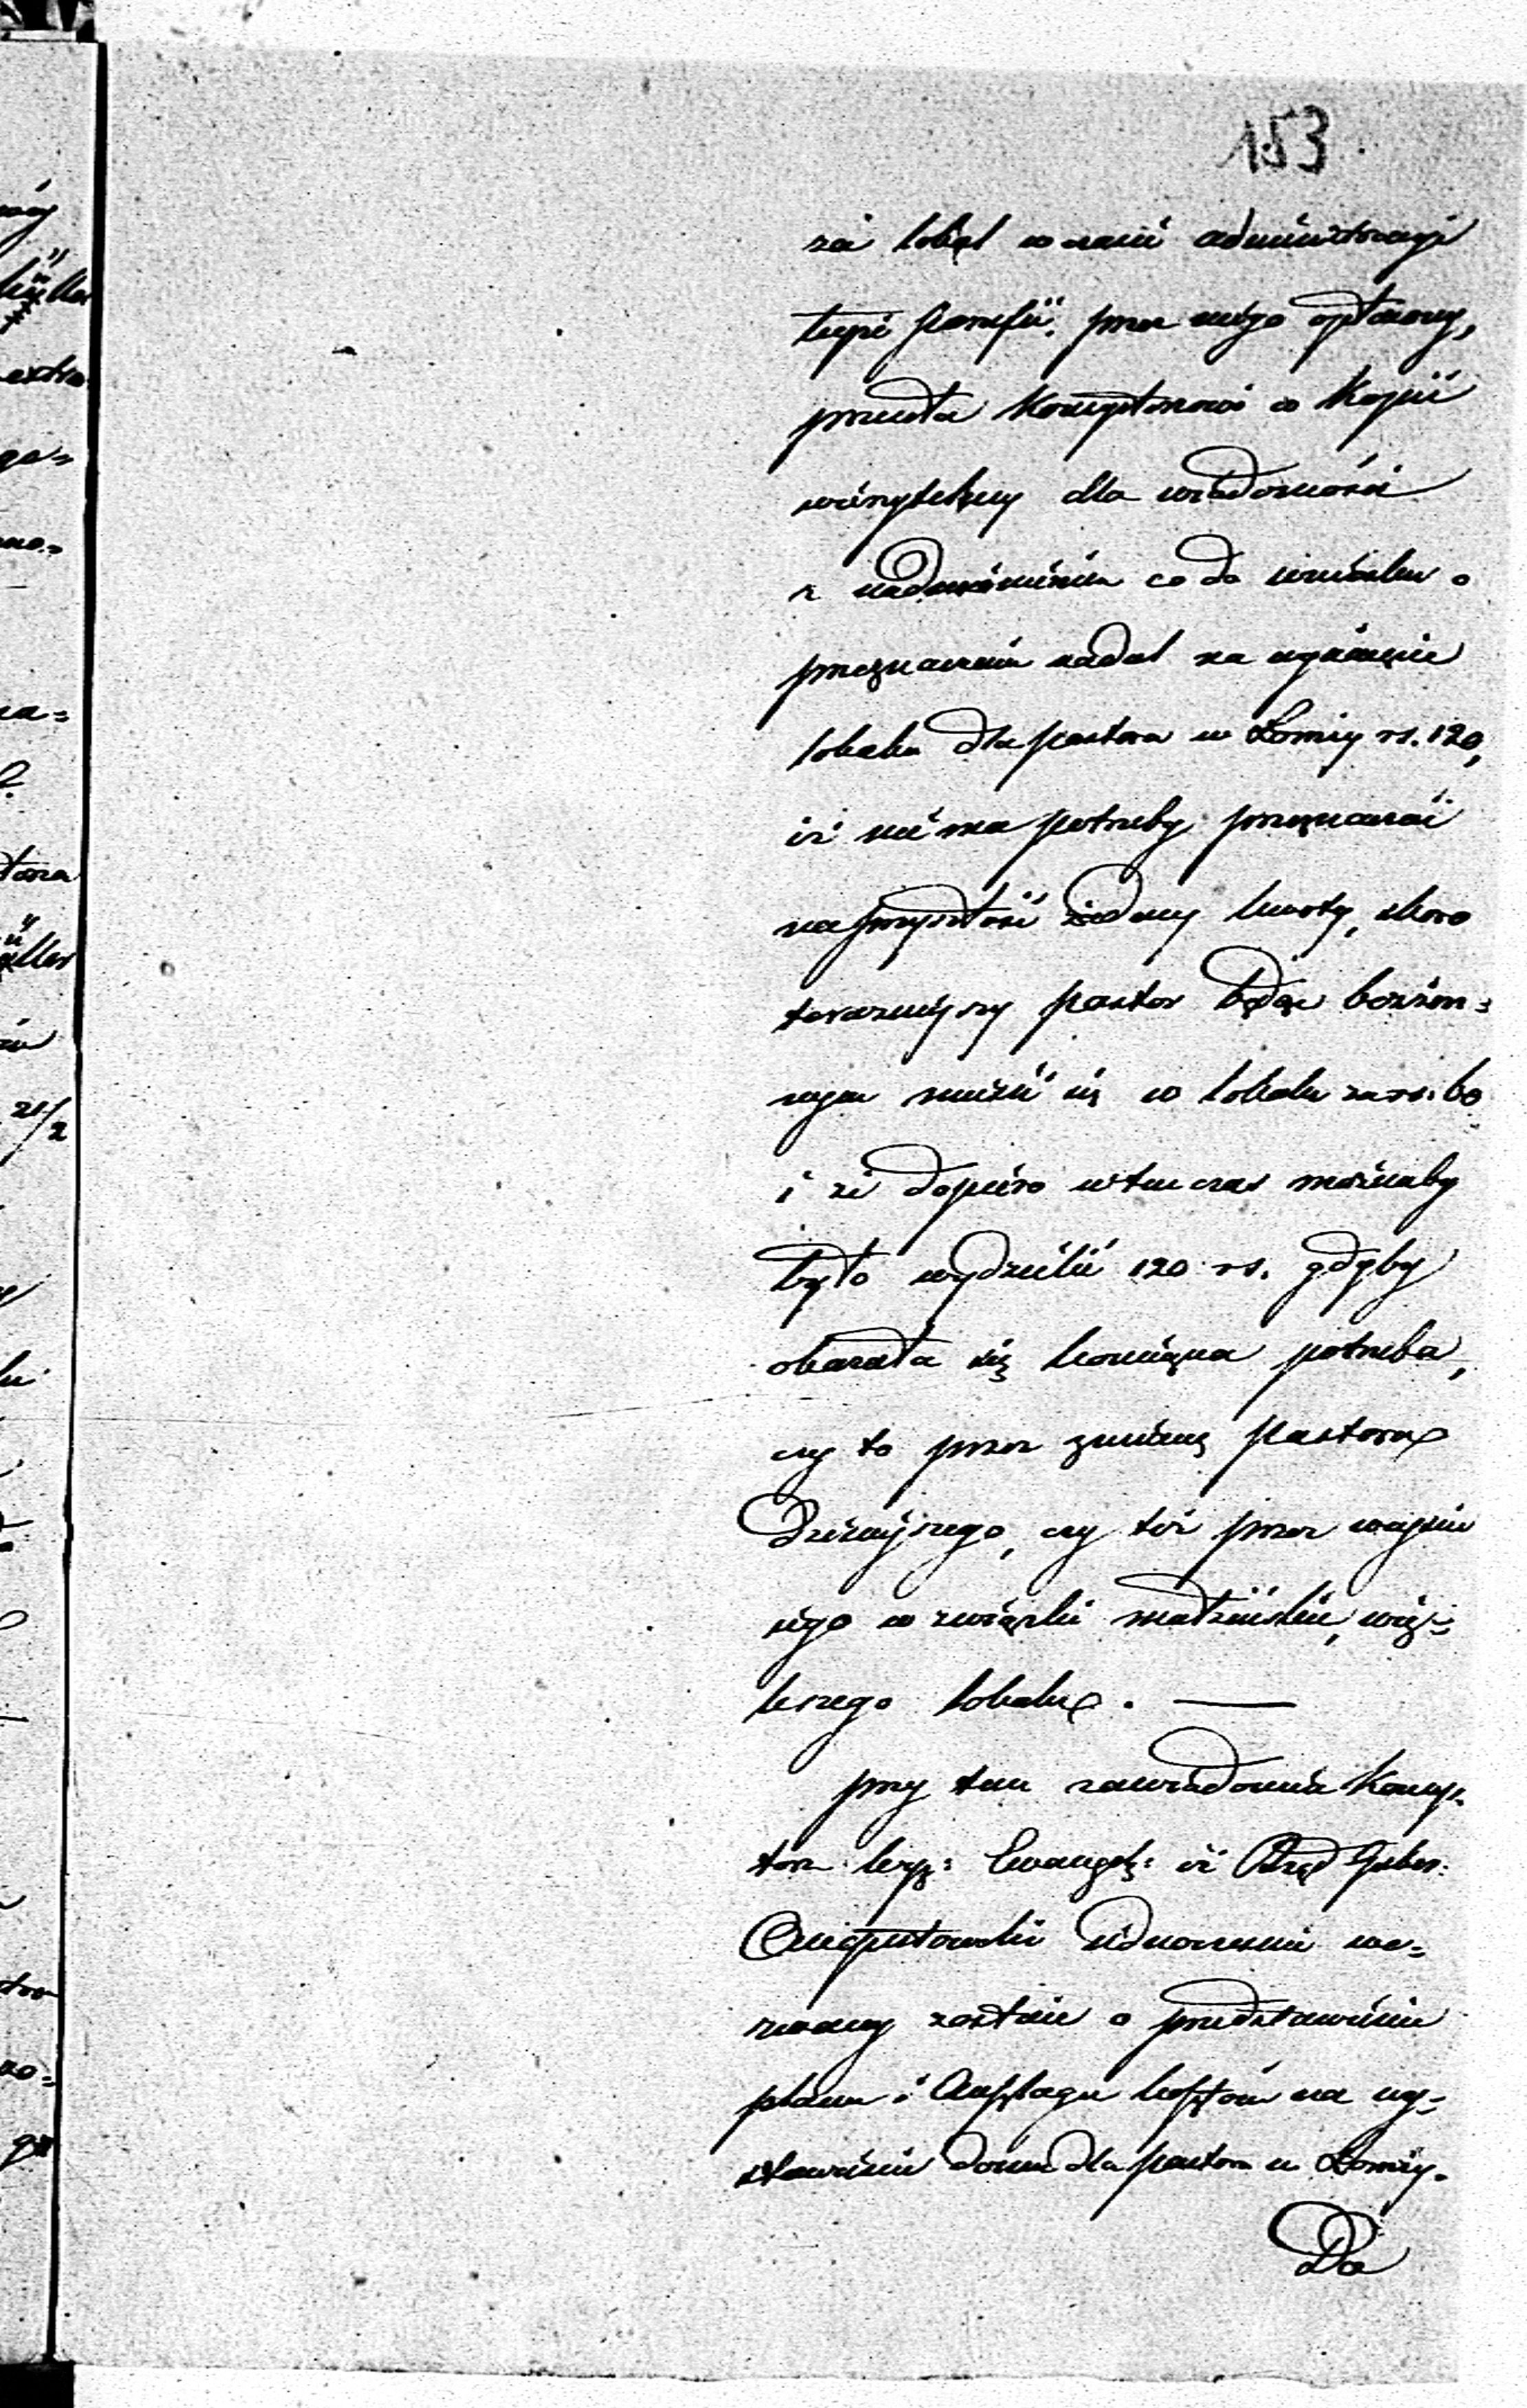 153
za lokal w czasie administracyi
tejże Parafii przez niego opłacony,
przesyła Konsystorzowi w Kopii
wierzytelnej dla wiadomości
z nadmienieniem co do wniosku o
przeznaczenie nadal na najęcie
lokalu dla pastora w Łomży rs. 120,
iż nie ma potrzeby przeznaczać
na przyszłość żadnej kwoty, skoro
teraźniejszy pastor będąc bezżen=
nym mieści się w lokalu za rs. 60
i że dopiero wtenczas możnaby
było wydzielić 120 rs. gdyby
okazała się konieczna potrzeba,
czy to przez zmianę pastora
dzisiejszego, czy też przez wejście
jego w związki małżeńskie, więk=
szego lokalu. —
przy tem zawiadamia Konsys=
torz Ewangel: iż Rząd Guber.
Augustowski jednocześnie we=
zwany zostaje o przedstawienie
planu i Anszlagu kosztów na wy=
stawienie domu dla pastora w Łomży.
Do
extra
ga=
na=
tora
21/2